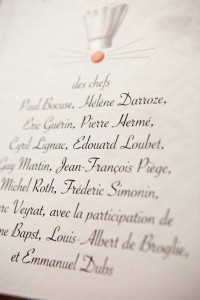 des chefs
Paul Bocuse, Hélène Darroze,
Eric Guérin, Pierre Hermé,
Cyril Lignac, Edouard Loubet,
Guy Martin, Jean-François Piège,
Michel Roth, Fréderic Simonin,
rc Veyrat, avec la participation de
ne Bapst, Louis-Albert de Broglie,
et Emmanuel Dabs